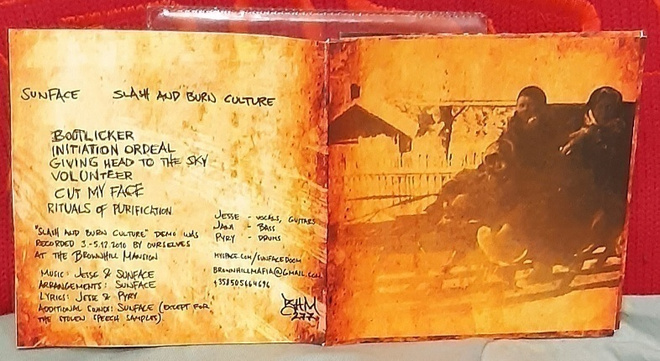 SUNFACE SLASH AND BURN CULTURE
BOOTLICKER
INITIATION ORDEAL
GIVING HEAD TO THE SKY
VOLUNTEER
CUT MY FACE
RITUALS OF PURIFICATION
"SLASH AND BURN CULTURE" DEMO WAS
RECORDED 3.-5.12.2010 BY OURSELVES
AT THE BROWNHILL MANSION
MUSIC: JESSE & SUNFACE
ARRANGEMENTS: SUNFACE
LYRICS: JESSE & PYRY
ADDITIONAL SOUNDS: SUNFACE (EXCEPT FOR
THE STOLEN SPEECH SAMPLES).
JESSE - VOCALS, GUITARS
JANA - BASS
PYRY - DRUMS
MYSPACE.COM/SUNFACEDOOM
BROWNHILLMAFIA@GMAIL.COM
+358505664696
BHM
277